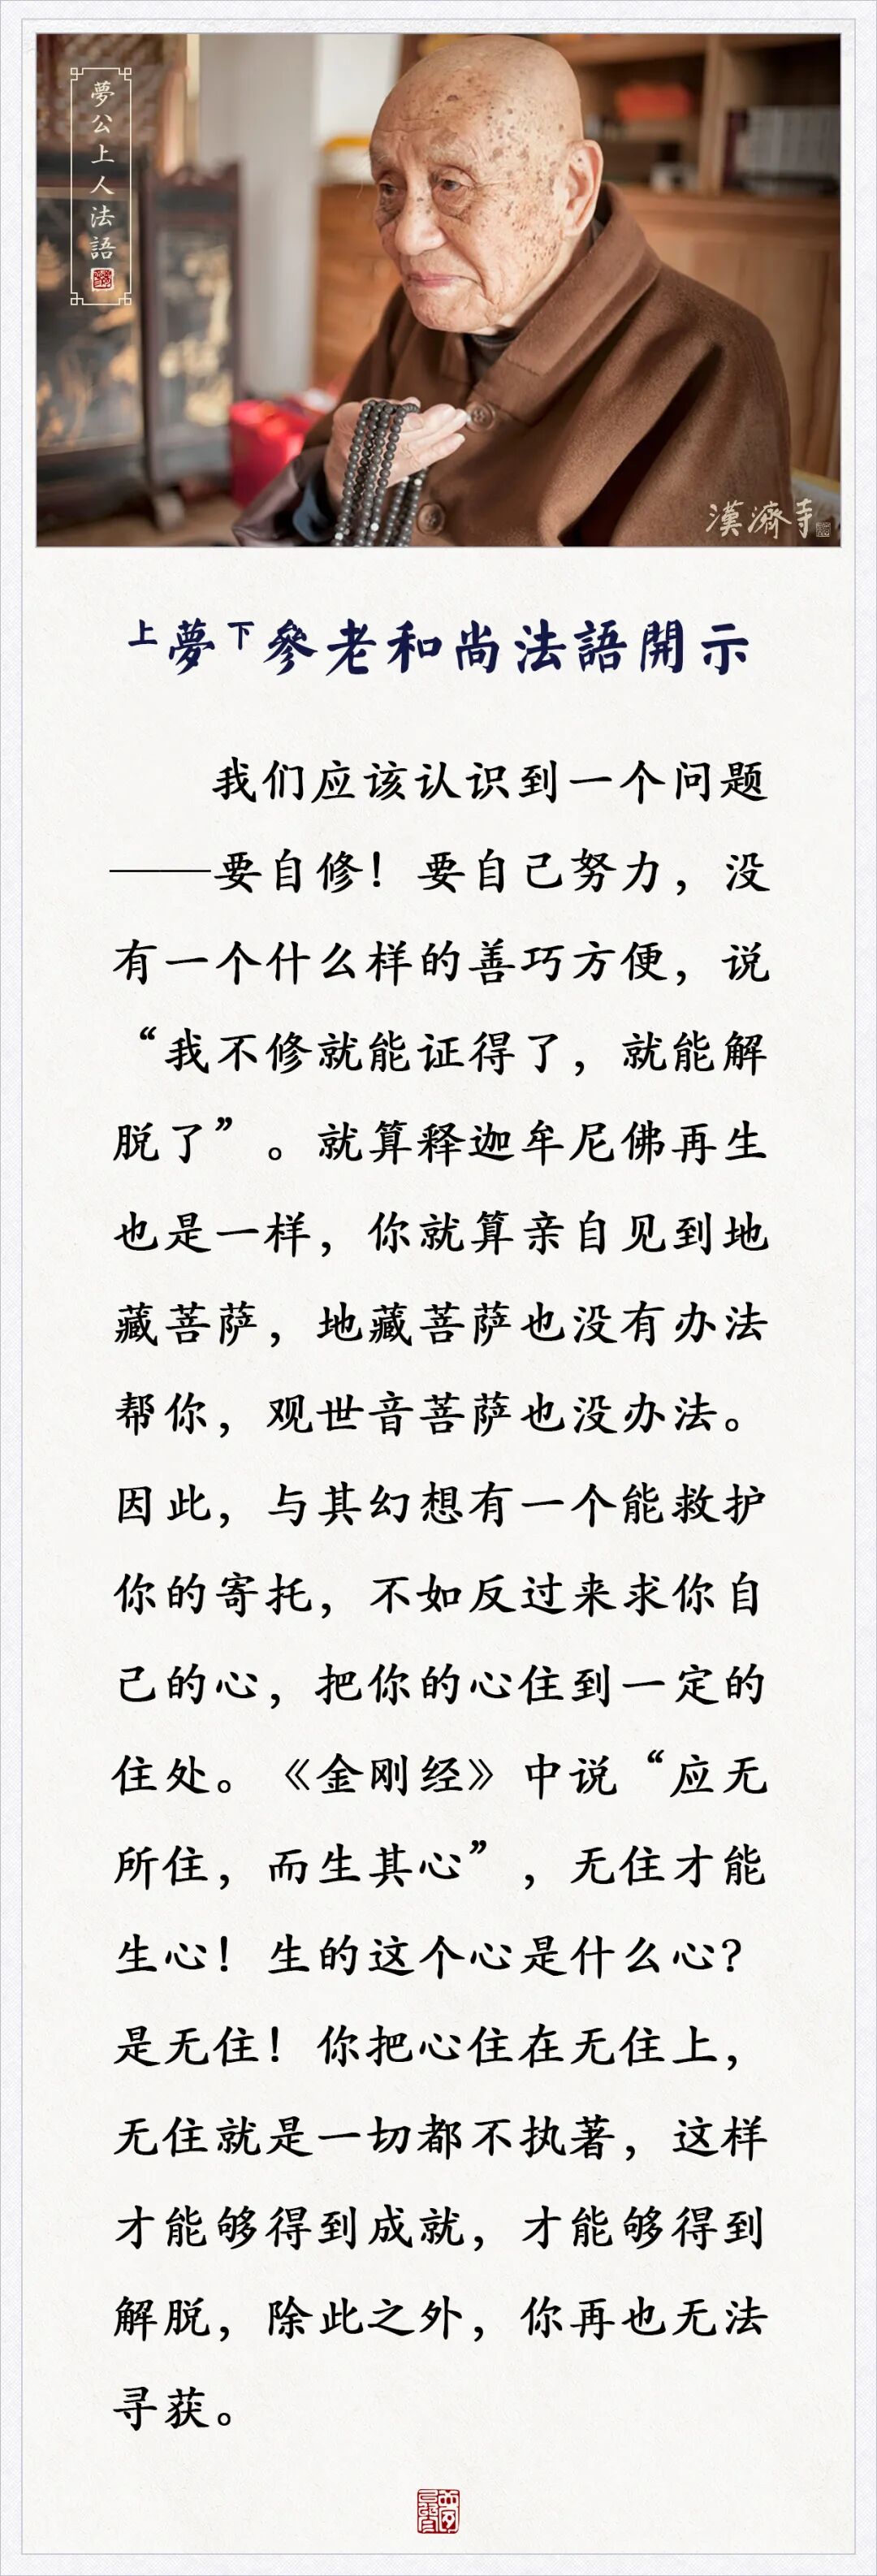 夢公上人法語
漢濟寺
上夢下參老和尚法語開示
我们应该认识到一个问题
——要自修！要自己努力，没
有一个什么样的善巧方便，说
“我不修就能证得了，就能解
脱了”。就算释迦牟尼佛再生
也是一样，你就算亲自见到地
藏菩萨，地藏菩萨也没有办法
帮你，观世音菩萨也没办法。
因此，与其幻想有一个能救护
你的寄托，不如反过来求你自
己的心，把你的心住到一定的
住处。《金刚经》中说“应无
所住，而生其心”，无住才能
生心！生的这个心是什么心？
是无住！你把心住在无住上，
无住就是一切都不执著，这样
才能够得到成就，才能够得到
解脱，除此之外，你再也无法
寻获。